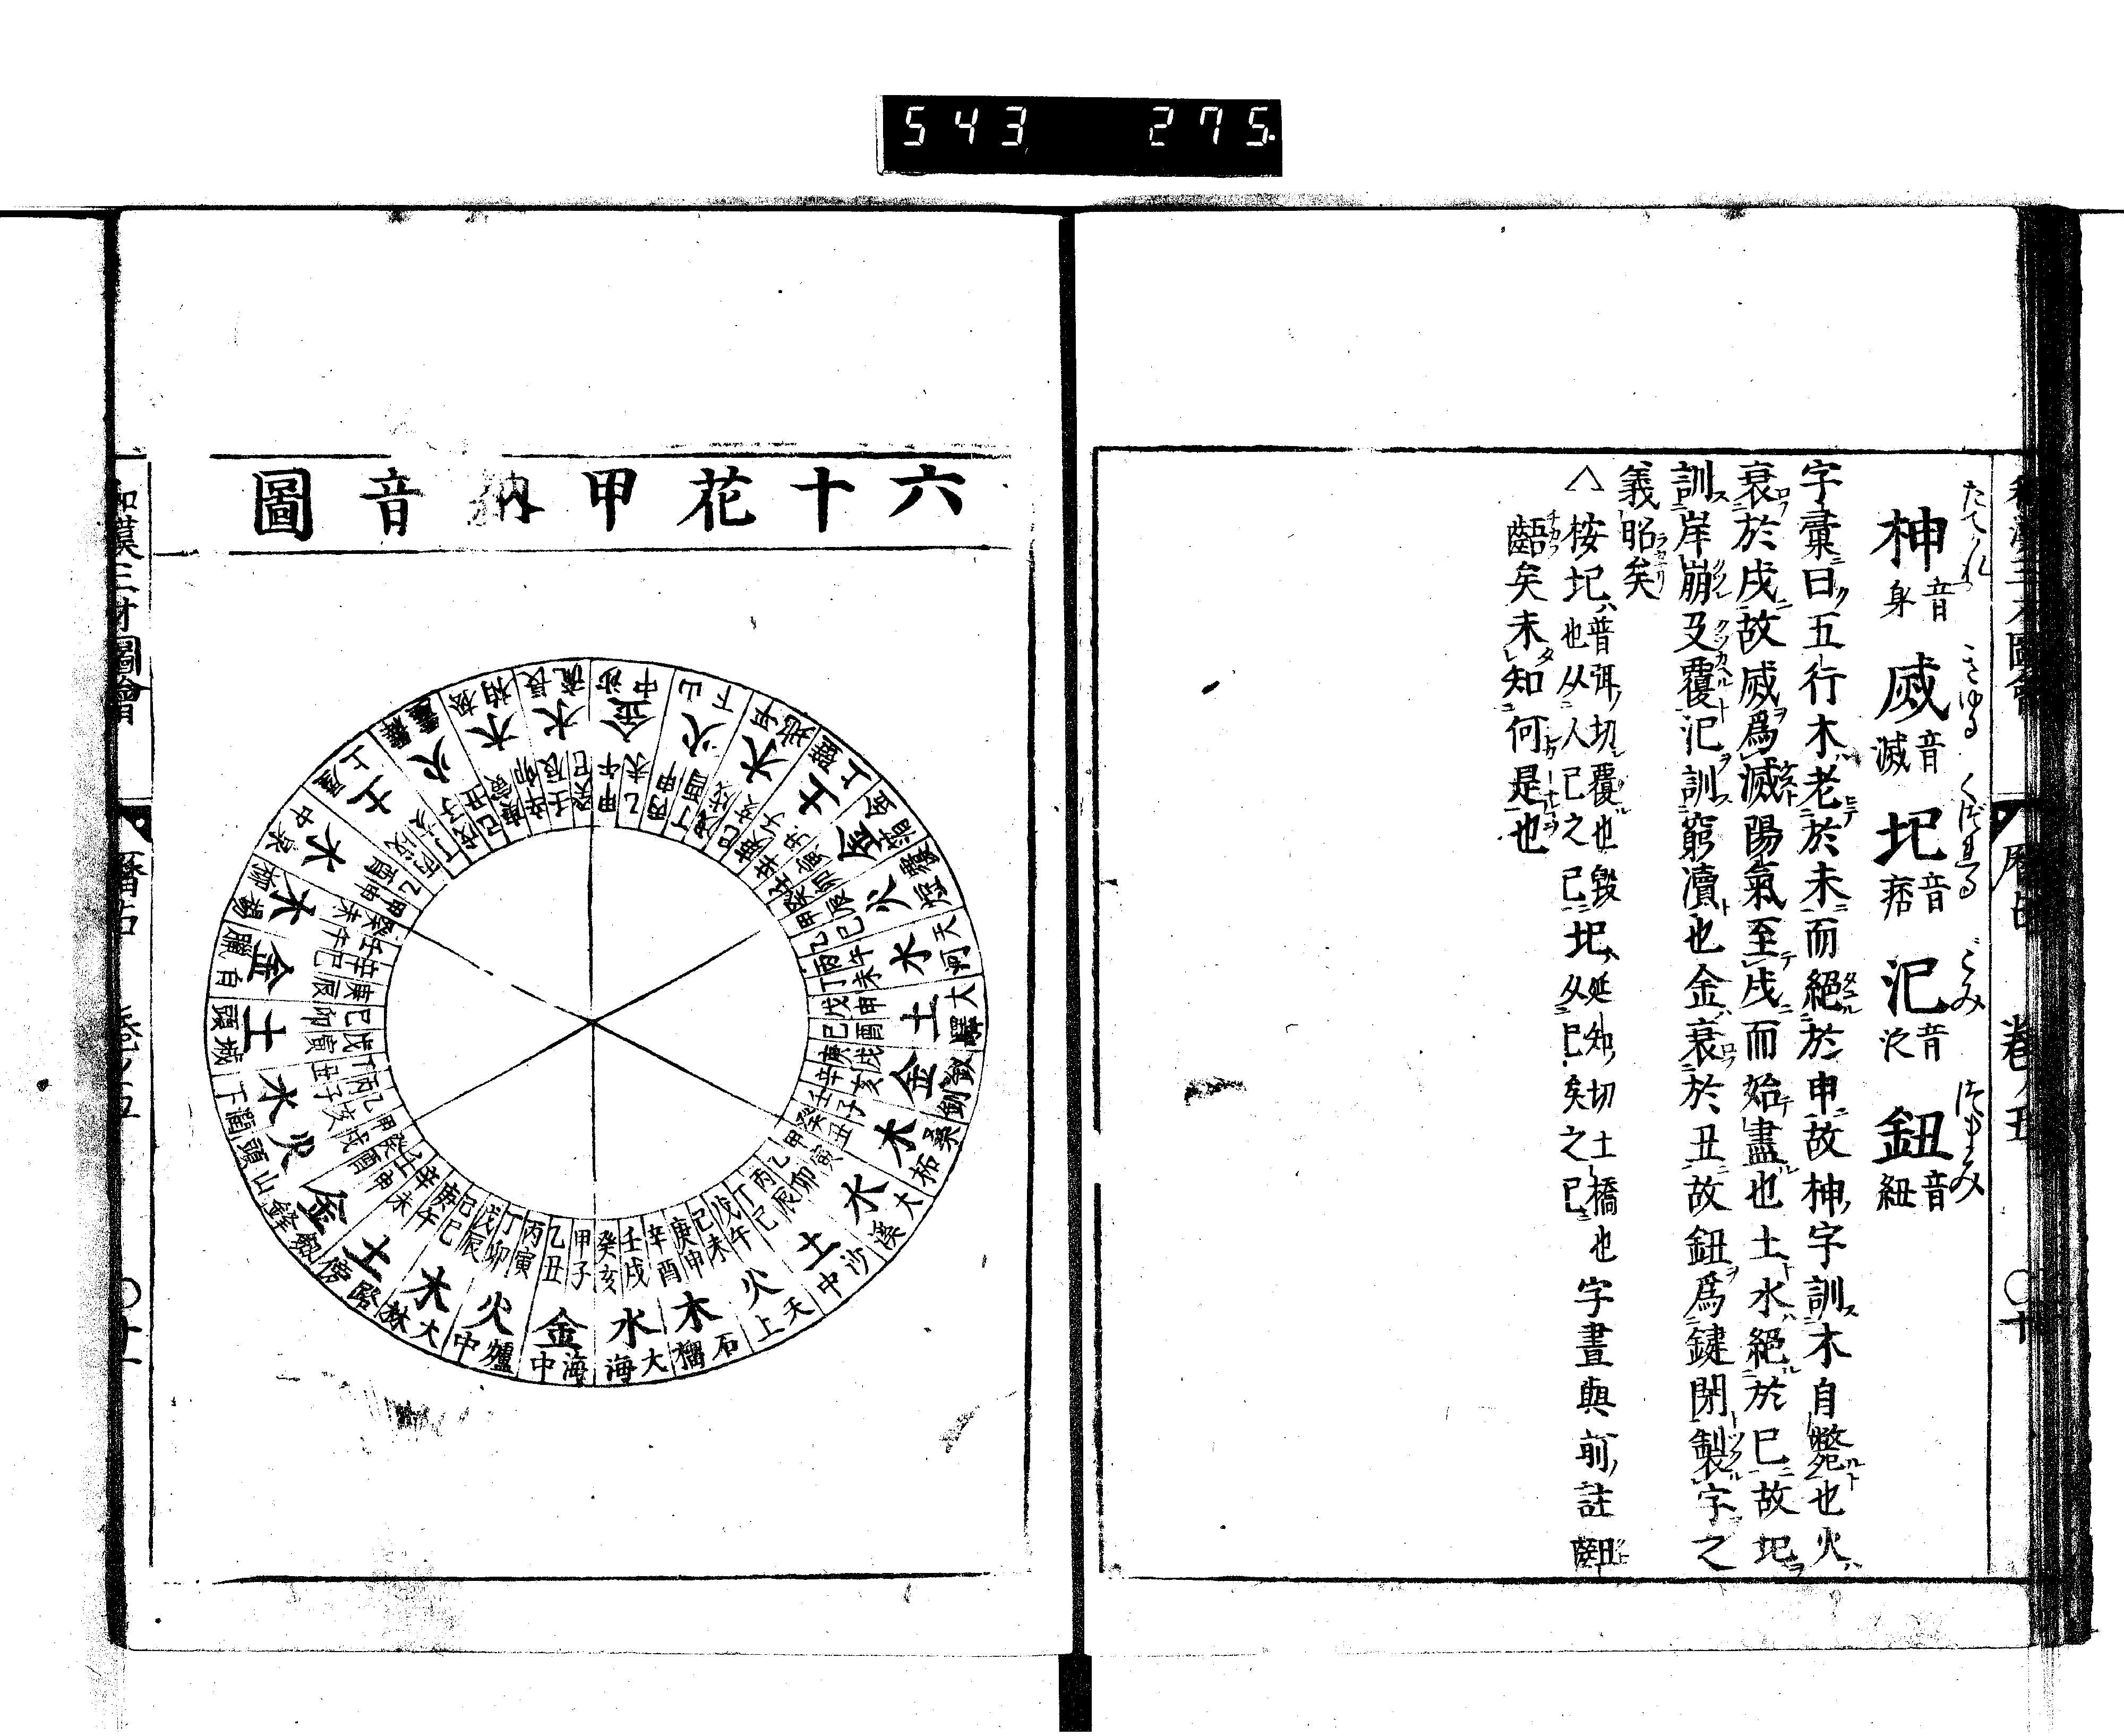 543 275
和漢三才圖會 曆占 卷ノ五 ○十
柛音身 烕音滅 圮音痞 汜音 鈕音紐
字彙曰五行木老於未而絕於申故柛字訓木自斃也火
衰於戌故烕爲滅陽氣至戌而始盡也土水絕於巳故圮
訓岸崩及覆汜訓窮瀆也金衰於丑故鈕爲鍵閉製字之
義昭矣
△桉圮普弭切覆也毀也从人己之己圯延知切土橋也从巳矣之巳字畫與前註齟
齬矣未知何是也
六十花甲納音圖
甲子 乙丑 金 海中
丙寅 丁卯 火 爐中
戊辰 己巳 木 大林
庚午 辛未 土 路傍
壬申 癸酉 金 釼鋒
甲戌 乙亥 火 山頭
丙子 丁丑 水 澗下
戊寅 己卯 土 城頭
庚辰 辛巳 金 白臘
壬午 癸未 木 楊柳
甲申 乙酉 水 泉中
丙戌 丁亥 土 屋上
戊子 己丑 火 霹靂
庚寅 辛卯 木 松柏
壬辰 癸巳 水 長流
甲午 乙未 金 沙中
丙申 丁酉 火 山下
戊戌 己亥 木 平地
庚子 辛丑 土 壁上
壬寅 癸卯 金 金箔
甲辰 乙巳 火 覆燈
丙午 丁未 水 天河
戊申 己酉 土 大驛
庚戌 辛亥 金 釵釧
壬子 癸丑 木 桑柘
甲寅 乙卯 水 大溪
丙辰 丁巳 土 沙中
戊午 己未 火 天上
庚申 辛酉 木 石榴
壬戌 癸亥 水 大海
和漢三才圖會 曆占 卷ノ五 ○十一